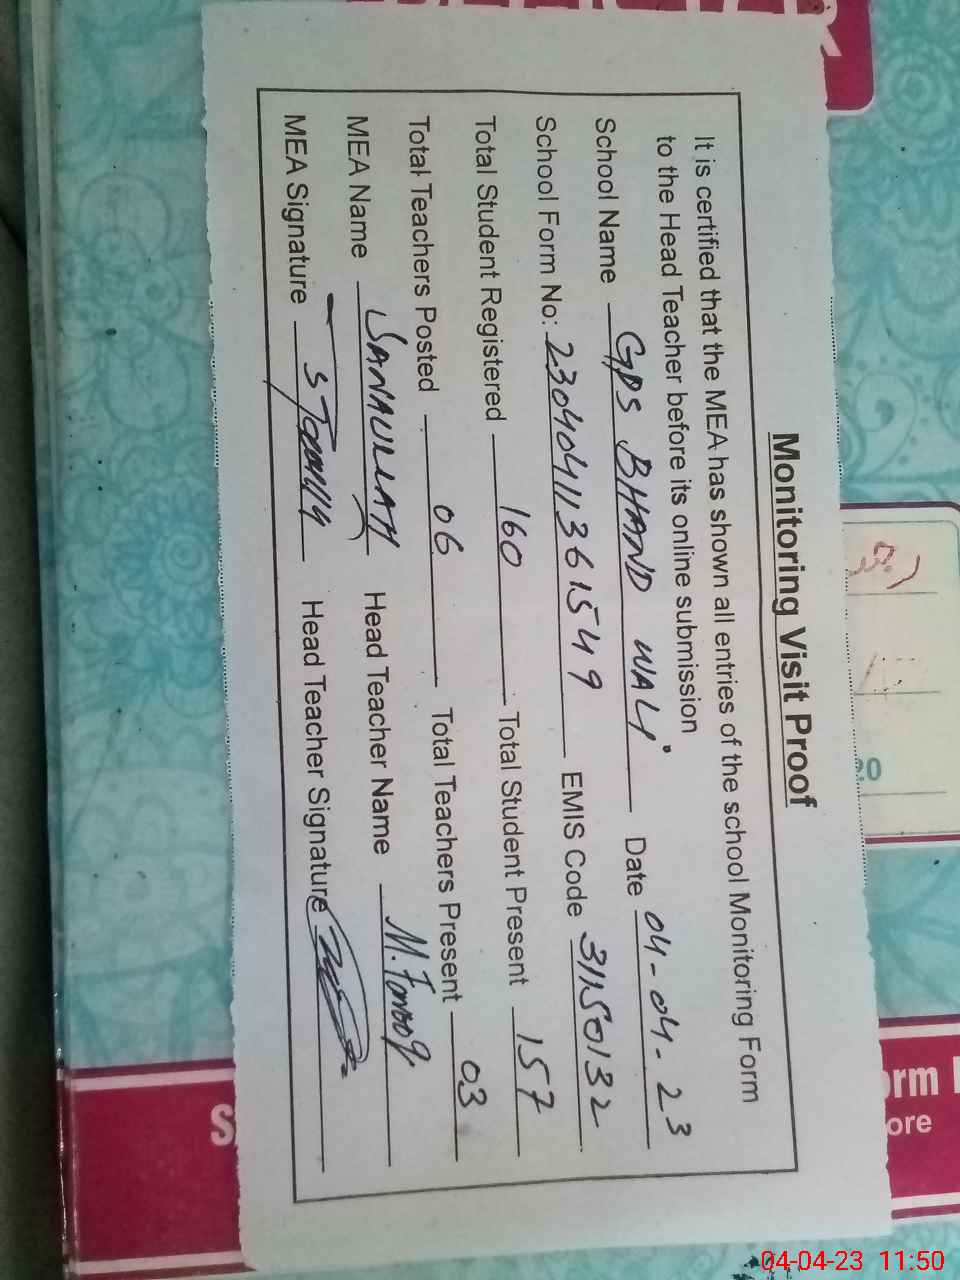 Monitoring Visit Proof
It is certified that the MEA has shown all entries of the school Monitoring Form
to the Head Teacher before its online submission
School Name GPS BHAND WALI Date 04-04-23
School Form No: 23040411361549 EMIS Code 31150132
Total Student Registered 160 Total Student Present 157
Total Teachers Posted 06 Total Teachers Present 03
MEA Name SANAULLAH Head Teacher Name M. Farooq
MEA Signature Head Teacher Signature
04-04-23 11:50